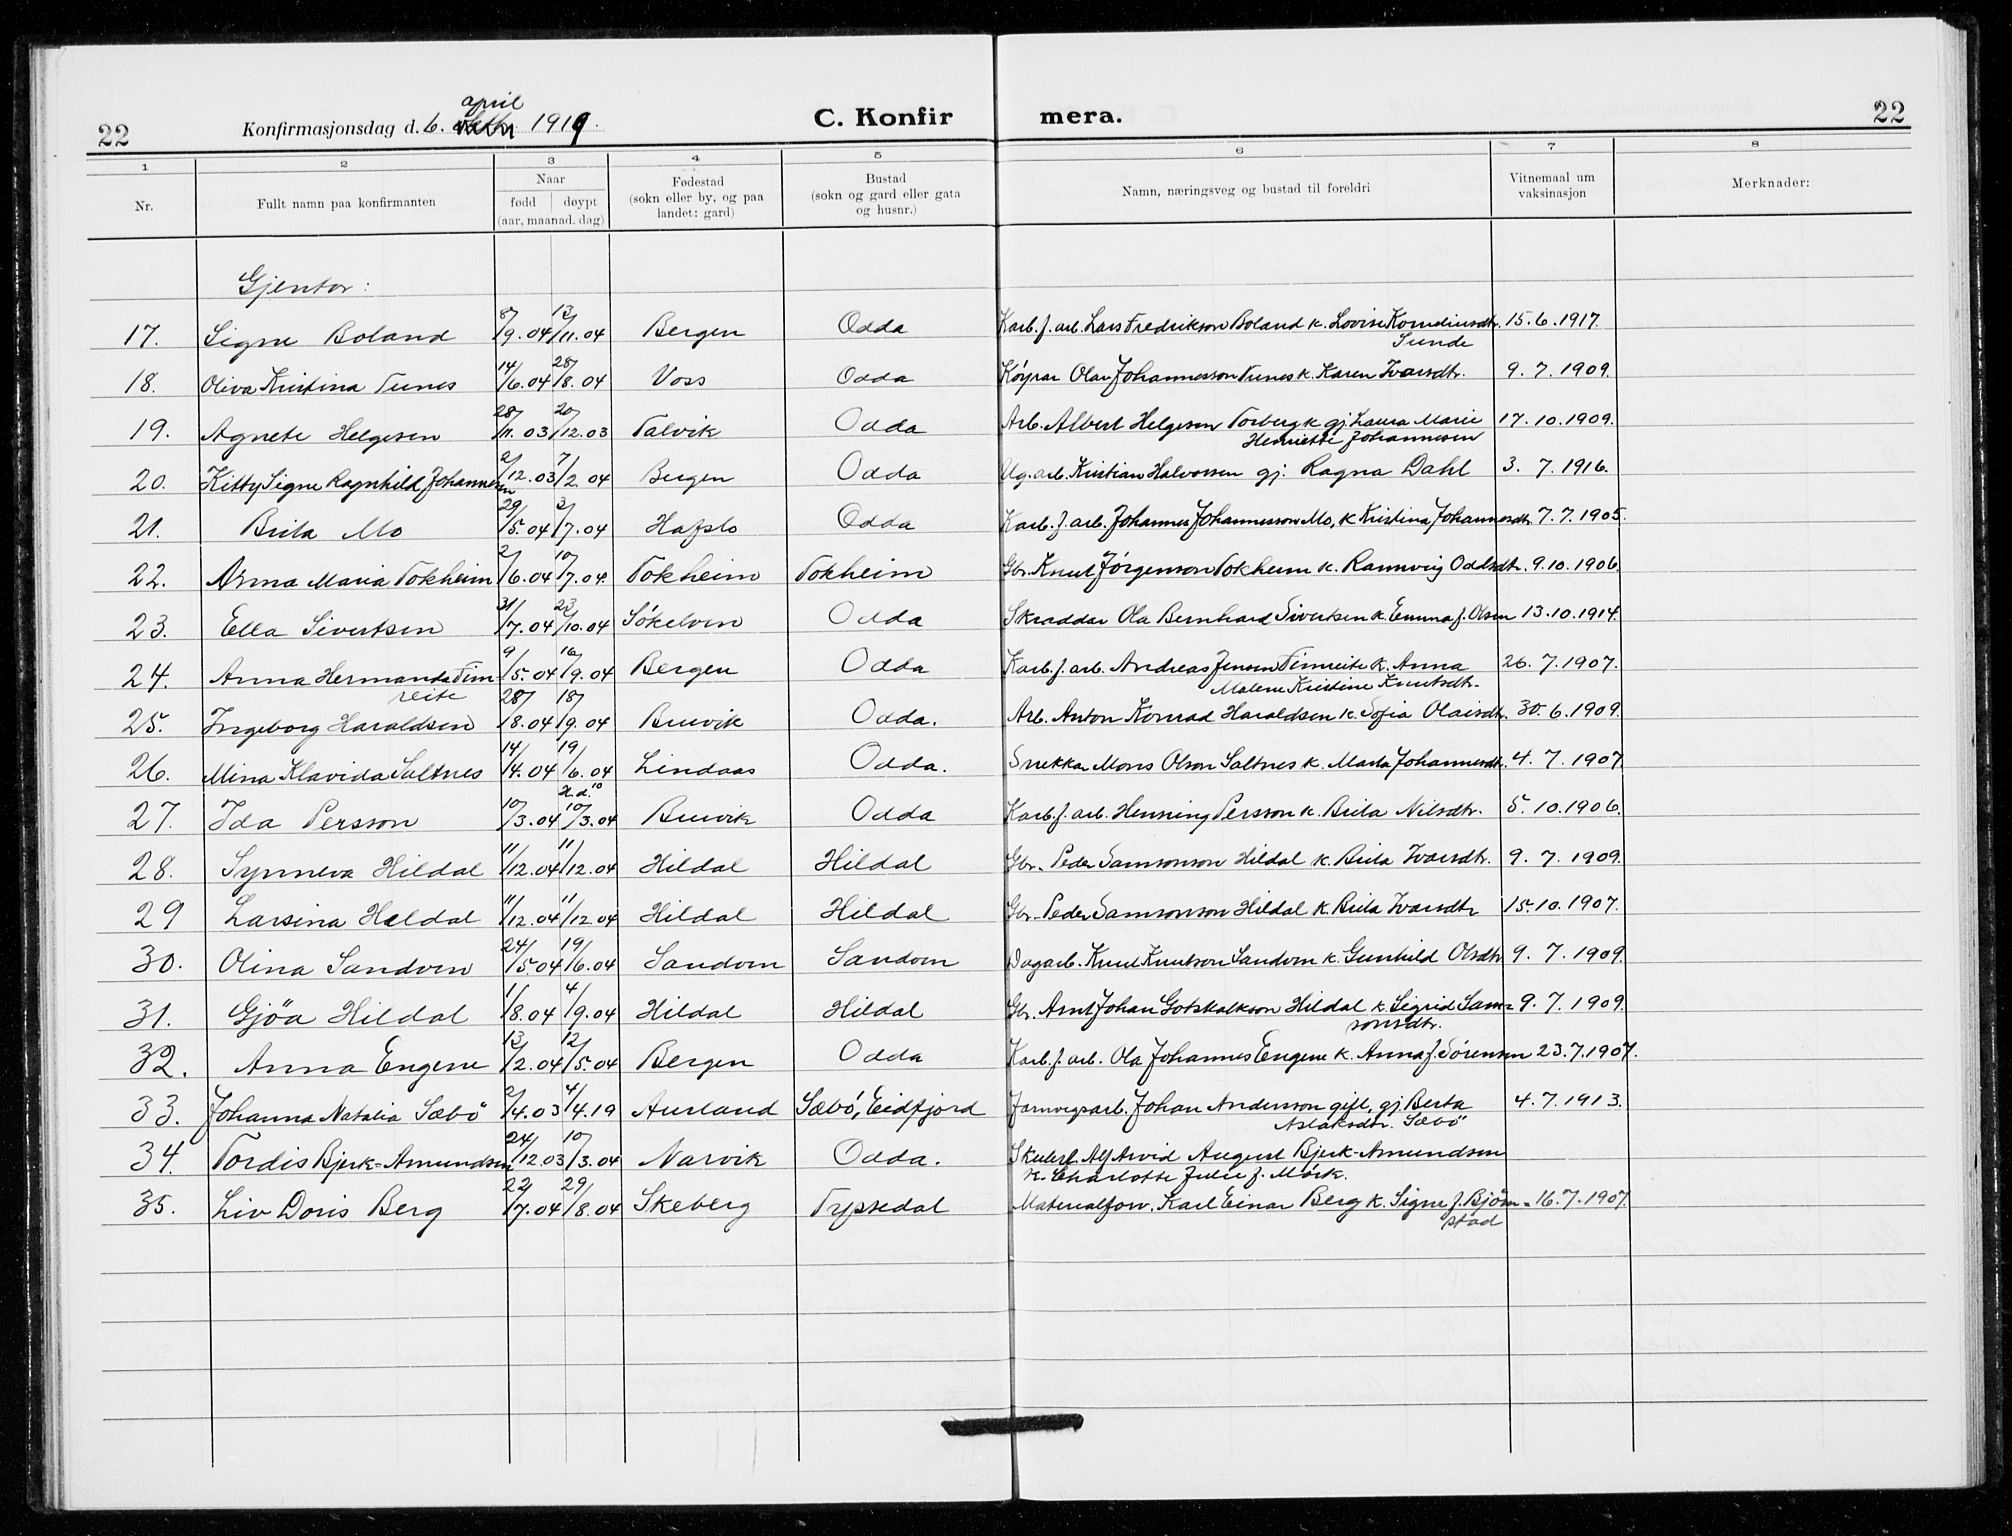 22 Konfirmasjonsdag d. 6. april 1919. C. Konfir mera. 22
1 2 3 4 5 6 7 8
Nr. Fullt namn paa konfirmanten Naar fødd døypt (aar, maanad, dag) Fødestad (sokn eller by, og paa landet: gard) Bustad (sokn og gard eller gata og husnr.) Namn, næringsveg og bustad til foreldri Vitnemaal um vaksinasjon Merknader:
Gjentor:
17. Signe Boland 8/9.04 13/11.04 Bergen Odda Karb.f. arb. Lars Fredrikson Boland k. Lovise Korneliusdtr. 15.6.1917.
Sunde
18. Oliva Kristina Tunes 14/6.04 28/8.04 Voss Odda Køyrar Olav Johannesson Tunes k. Karen Ivarsdtr. 9.7.1909.
19. Agnete Helgesen 28/11.03 20/12.03 Talvik Odda Arb. Albert Helgesen Torberg k gj. Laura Marie 17.10.1909.
Henriette Johannesen
20. Kitty Signe Ragnhild Johannesen 2/12.03 7/2.04 Bergen Odda Ug. arb. Kristian Halvorsen gj. Ragna Dahl 3.7.1916.
21. Brita Mo 29/5.04 3/7.04 Hafslo Odda Karb.f. arb. Johannes Johannesson Mo, k Kristina Johannesdtr. 7.7.1905.
22. Anna Maria Tokheim 2/6.04 10/7.04 Tokheim Tokheim Gbr. Knut Jørgenson Tokheim k. Rannveig Oddsdtr. 9.10.1906.
23. Ella Sivertsen 31/7.04 23/10.04 Søkelven Odda Skraddar Ola Bernhard Sivertsen k. Emma f. Olsen 13.10.1914.
24. Anna Hermanda Fim 9/5.04 16/9.04 Bergen Odda Karb.f. arb. Andreas Jensen Fimreite k. Anna 26.7.1907.
reite Malene Kristine Knutsdtr.
25. Ingeborg Haraldsen 28/8.04 18/9.04 Bruvik Odda. Arb. Anton Konrad Haraldsen k. Sofia Olaisdtr. 30.6.1909.
26. Mina Klavida Saltnes 14/4.04 19/6.04 Lindaas Odda. Snekkar Mons Olson Saltnes k. Marta Johannesdtr. 4.7.1907
27. Ida Persson 10/3.04 H.d. 10 10/3.04 Bruvik Odda Karb.f. arb. Henning Persson k. Brita Nilsdtr. 5.10.1906.
28. Synneva Hildal 11/12.04 11/12.04 Hildal Hildal Gbr. Peder Samsonson Hildal k. Brita Ivarsdtr. 9.7.1909.
29 Larsina Hildal 11/12.04 11/12.04 Hildal Hildal Gbr. Peder Samsonson Hildal k. Brita Ivarsdtr 15.10.1907.
30. Olina Sandven 24/5.04 19/6.04 Sandven Sandven Dagarb. Knut Knutson Sandven k. Gunhild Olsdtr 9.7.1909.
31. Gjøa Hildal 1/8.04 4/9.04 Hildal Hildal Gbr. Arnt Johan Gotskalkson Hildal k. Sigrid Sam= 9.7.1909.
sonsdtr.
32. Anna Engene 13/2.04 12/5.04 Bergen Odda Karb.f. arb. Ola Johannes Engene k. Anna f. Sørensen 23.7.1907.
33. Johanna Natalia Sæbö 2/4.03 4/4.19 Aurland Sæbö, Eidfjord Jarnvegsarb. Johan Anderson gift, gj. Berta 4.7.1913.
Aslaksdtr. Sæbö
34. Tordis Bjerk=Amundsen 24/12.03 10/3.04 Narvik Odda. Skulest. Alf Arvid August Bjerk-Amundsen
k. Charlotte Julie f. Mörk.
35. Liv Doris Berg 22/7.04 29/8.04 Skeberg Tyssedal Materialforv. Karl Einar Berg k. Signe f. Bjørn= 16.7.1907.
stad